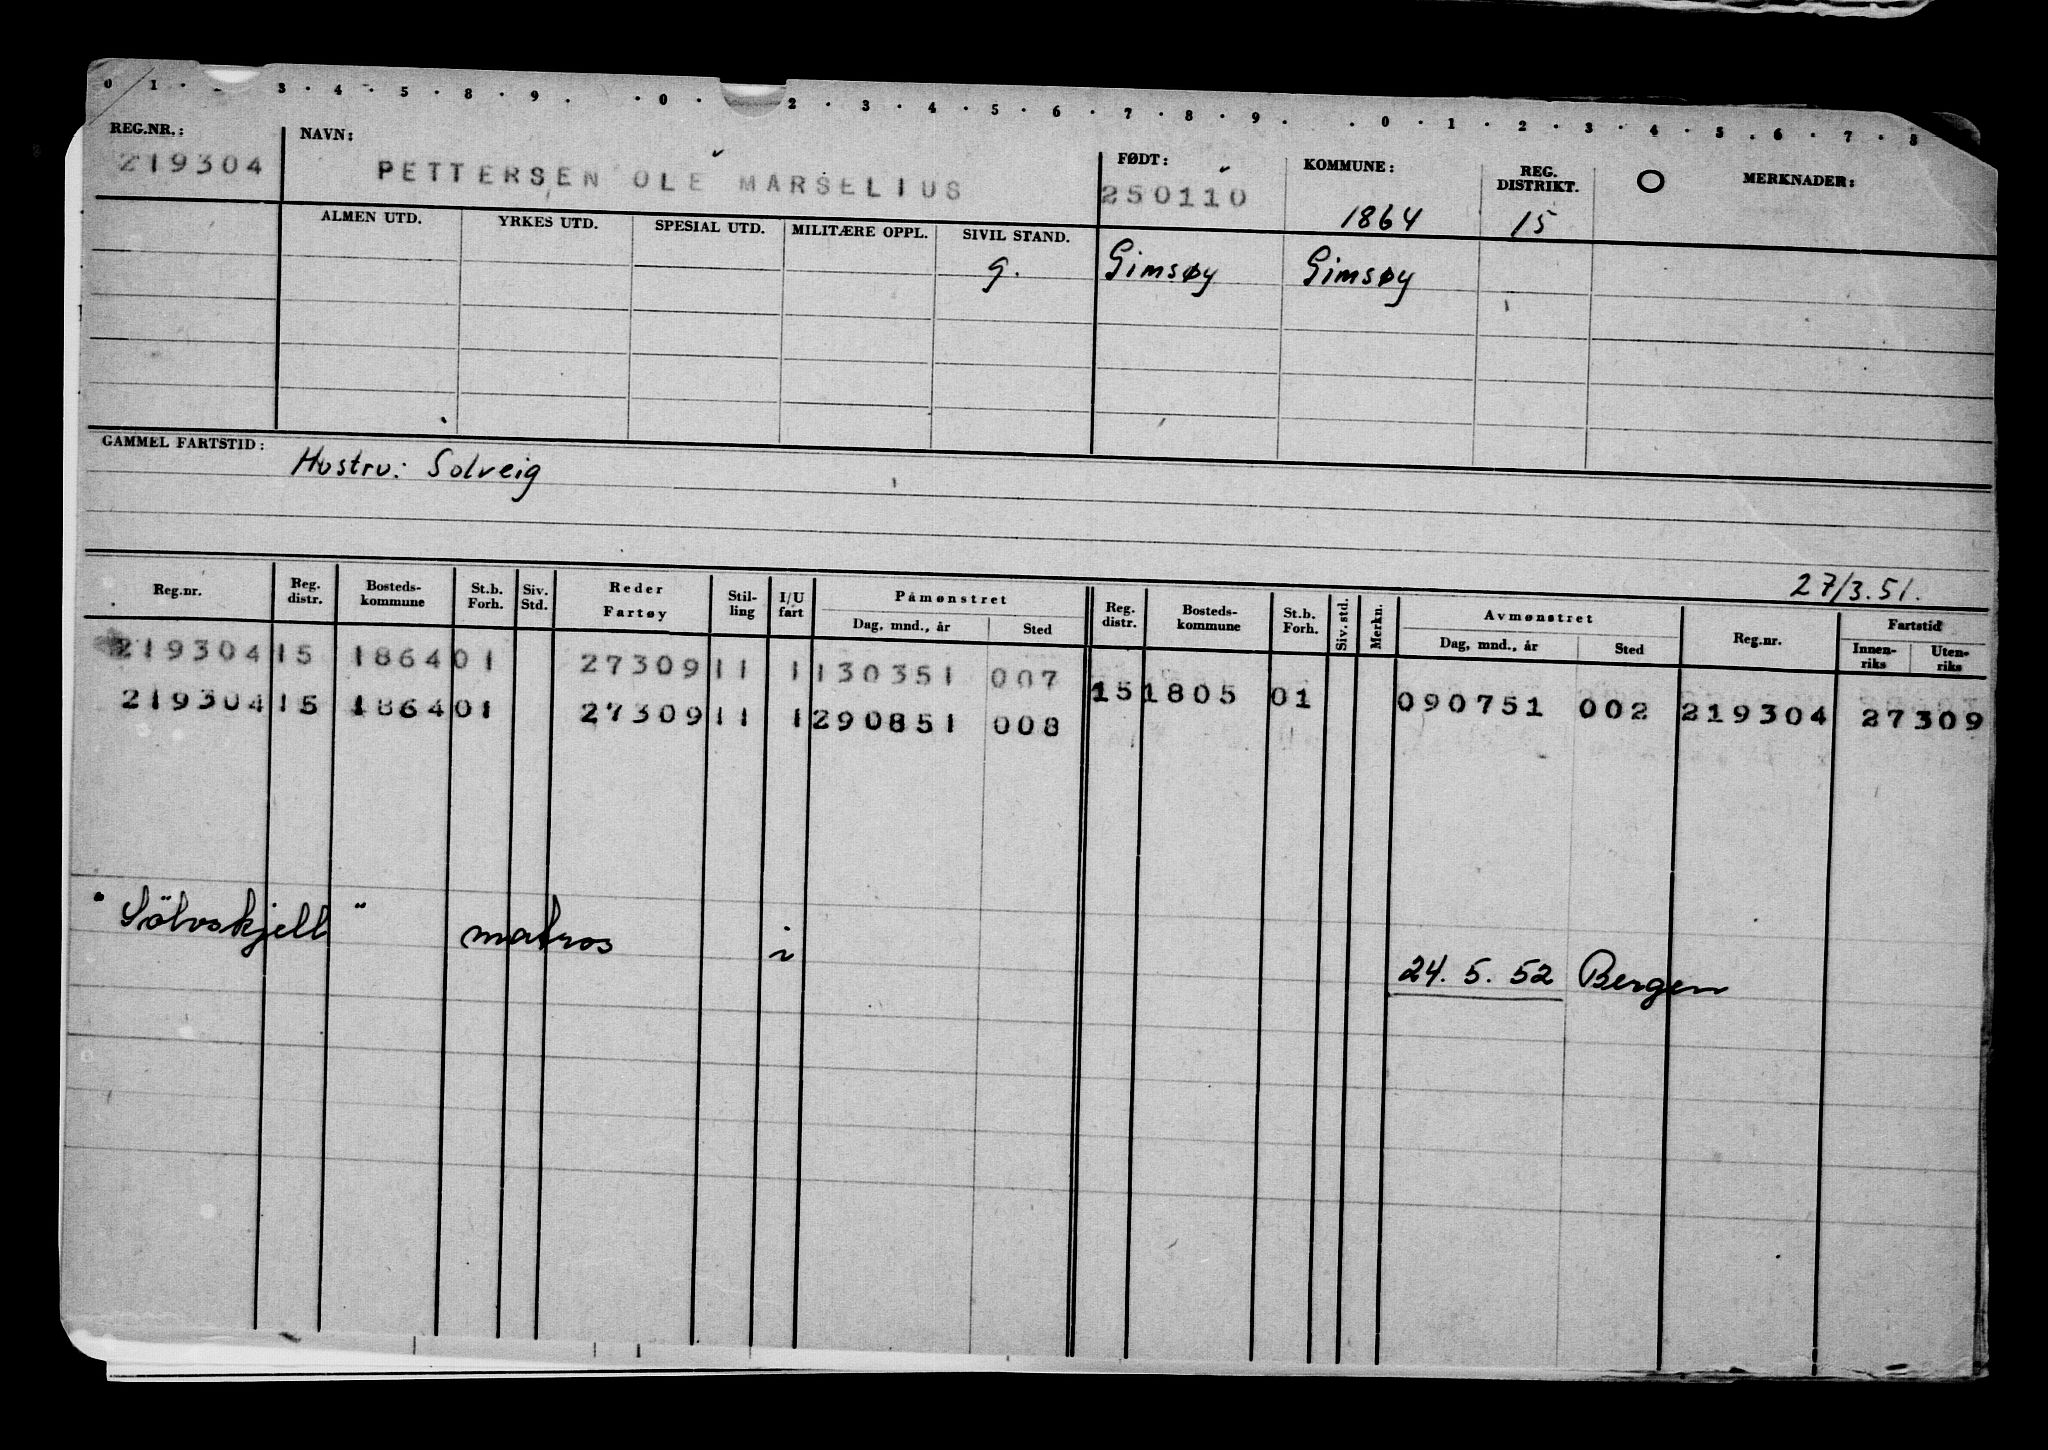 0 1 · 3 · 4 · 5 · 8 · 9 · · 0 · 2 · 3 · 4 · 5 · 6 · 7 · 8 · 9 · · 0 · 1 · 2 · 3 · 4 · 5 · 6 · 7 · 8
REG.NR.: NAVN: FØDT: KOMMUNE: REG. DISTRIKT. O MERKNADER:
219304 PETTERSEN OLE MARSELIUS 250110 1864 15
ALMEN UTD. YRKES UTD. SPESIAL UTD. MILITÆRE OPPL. SIVIL STAND.
g. Gimsøy Gimsøy
GAMMEL FARTSTID: Hustru: Solveig
27/3.51.
Reg.nr. Reg. distr. Bosteds-kommune St.b. Forh. Siv. Std. Reder Fartøy Stil-ling I/U fart Påmønstret Dag, mnd., år Sted Reg. distr. Bosteds-kommune St.b. Forh. Siv. std. Merkn. Avmønstret Dag, mnd., år Sted Reg.nr. Fartstid Innen-riks Uten-riks
219304 15 1864 01 27309 11 1 130351 007 15 1805 01 090751 002 219304 27309
219304 15 1864 01 27309 11 1 290851 008
"Sölvskjell" matros i 24. 5. 52 Bergen